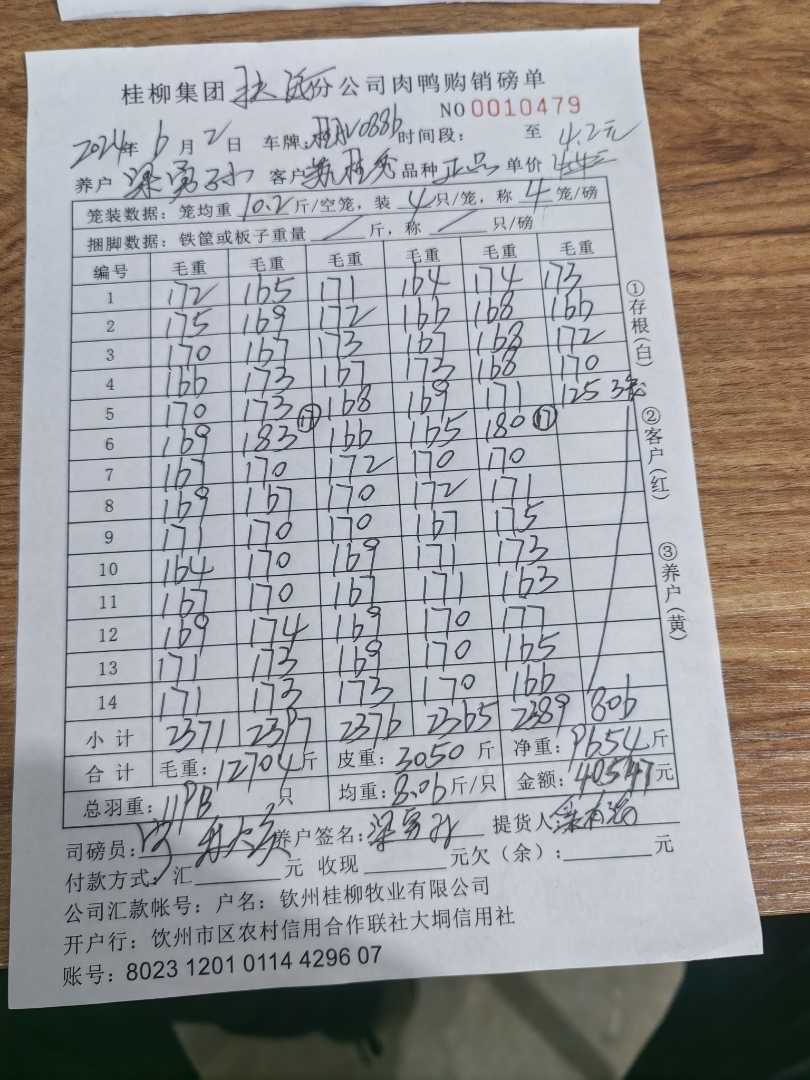 桂柳集团 公司肉鸭购销磅单
NO 0010479
2024年6月2日 车牌: 桂AV0886 时间段: 至 4.2元
养户 梁勇 客户 桂 品种 正品 单价 4.4元
笼装数据: 笼均重 10.2 斤/空笼, 装 4 只/笼, 称 4 笼/磅
捆脚数据: 铁筐或板子重量 / 斤, 称 / 只/磅
编号 毛重 毛重 毛重 毛重 毛重 毛重
1 172 165 171 164 174 173
2 175 169 172 166 168 166
3 170 167 173 167 168 172
4 166 173 167 173 168 170
5 170 173 168 169 171 125 3
6 169 183 ⑰ 166 165 180 ⑰
7 167 170 172 170 170
8 169 167 170 172 171
9 171 170 170 167 175
10 164 170 169 171 173
11 167 170 167 171 163
12 169 174 169 170 177
13 171 173 169 170 165
14 171 173 173 170 166
小计 2371 2397 2376 2365 2389 806
合计 毛重: 12704 斤 皮重: 3050 斤 净重: 9654 斤
总羽重: 只 均重: 8.06 斤/只 金额: 40547 元
司磅员: 养户签名: 梁勇 提货人:
付款方式: 汇 元 收现 元欠(余): 元
公司汇款帐号: 户名: 钦州桂柳牧业有限公司
开户行: 钦州市区农村信用合作联社大垌信用社
账号: 8023 1201 0114 4296 07
①存根(白)
②客户(红)
③养户(黄)